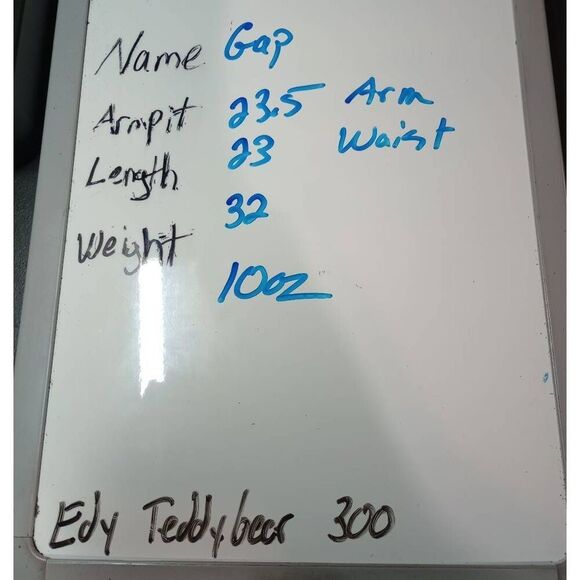 Name Gap
Armpit 23.5 Arm
23 Waist
Length
32
Weight
10oz
Edy Teddybear 300